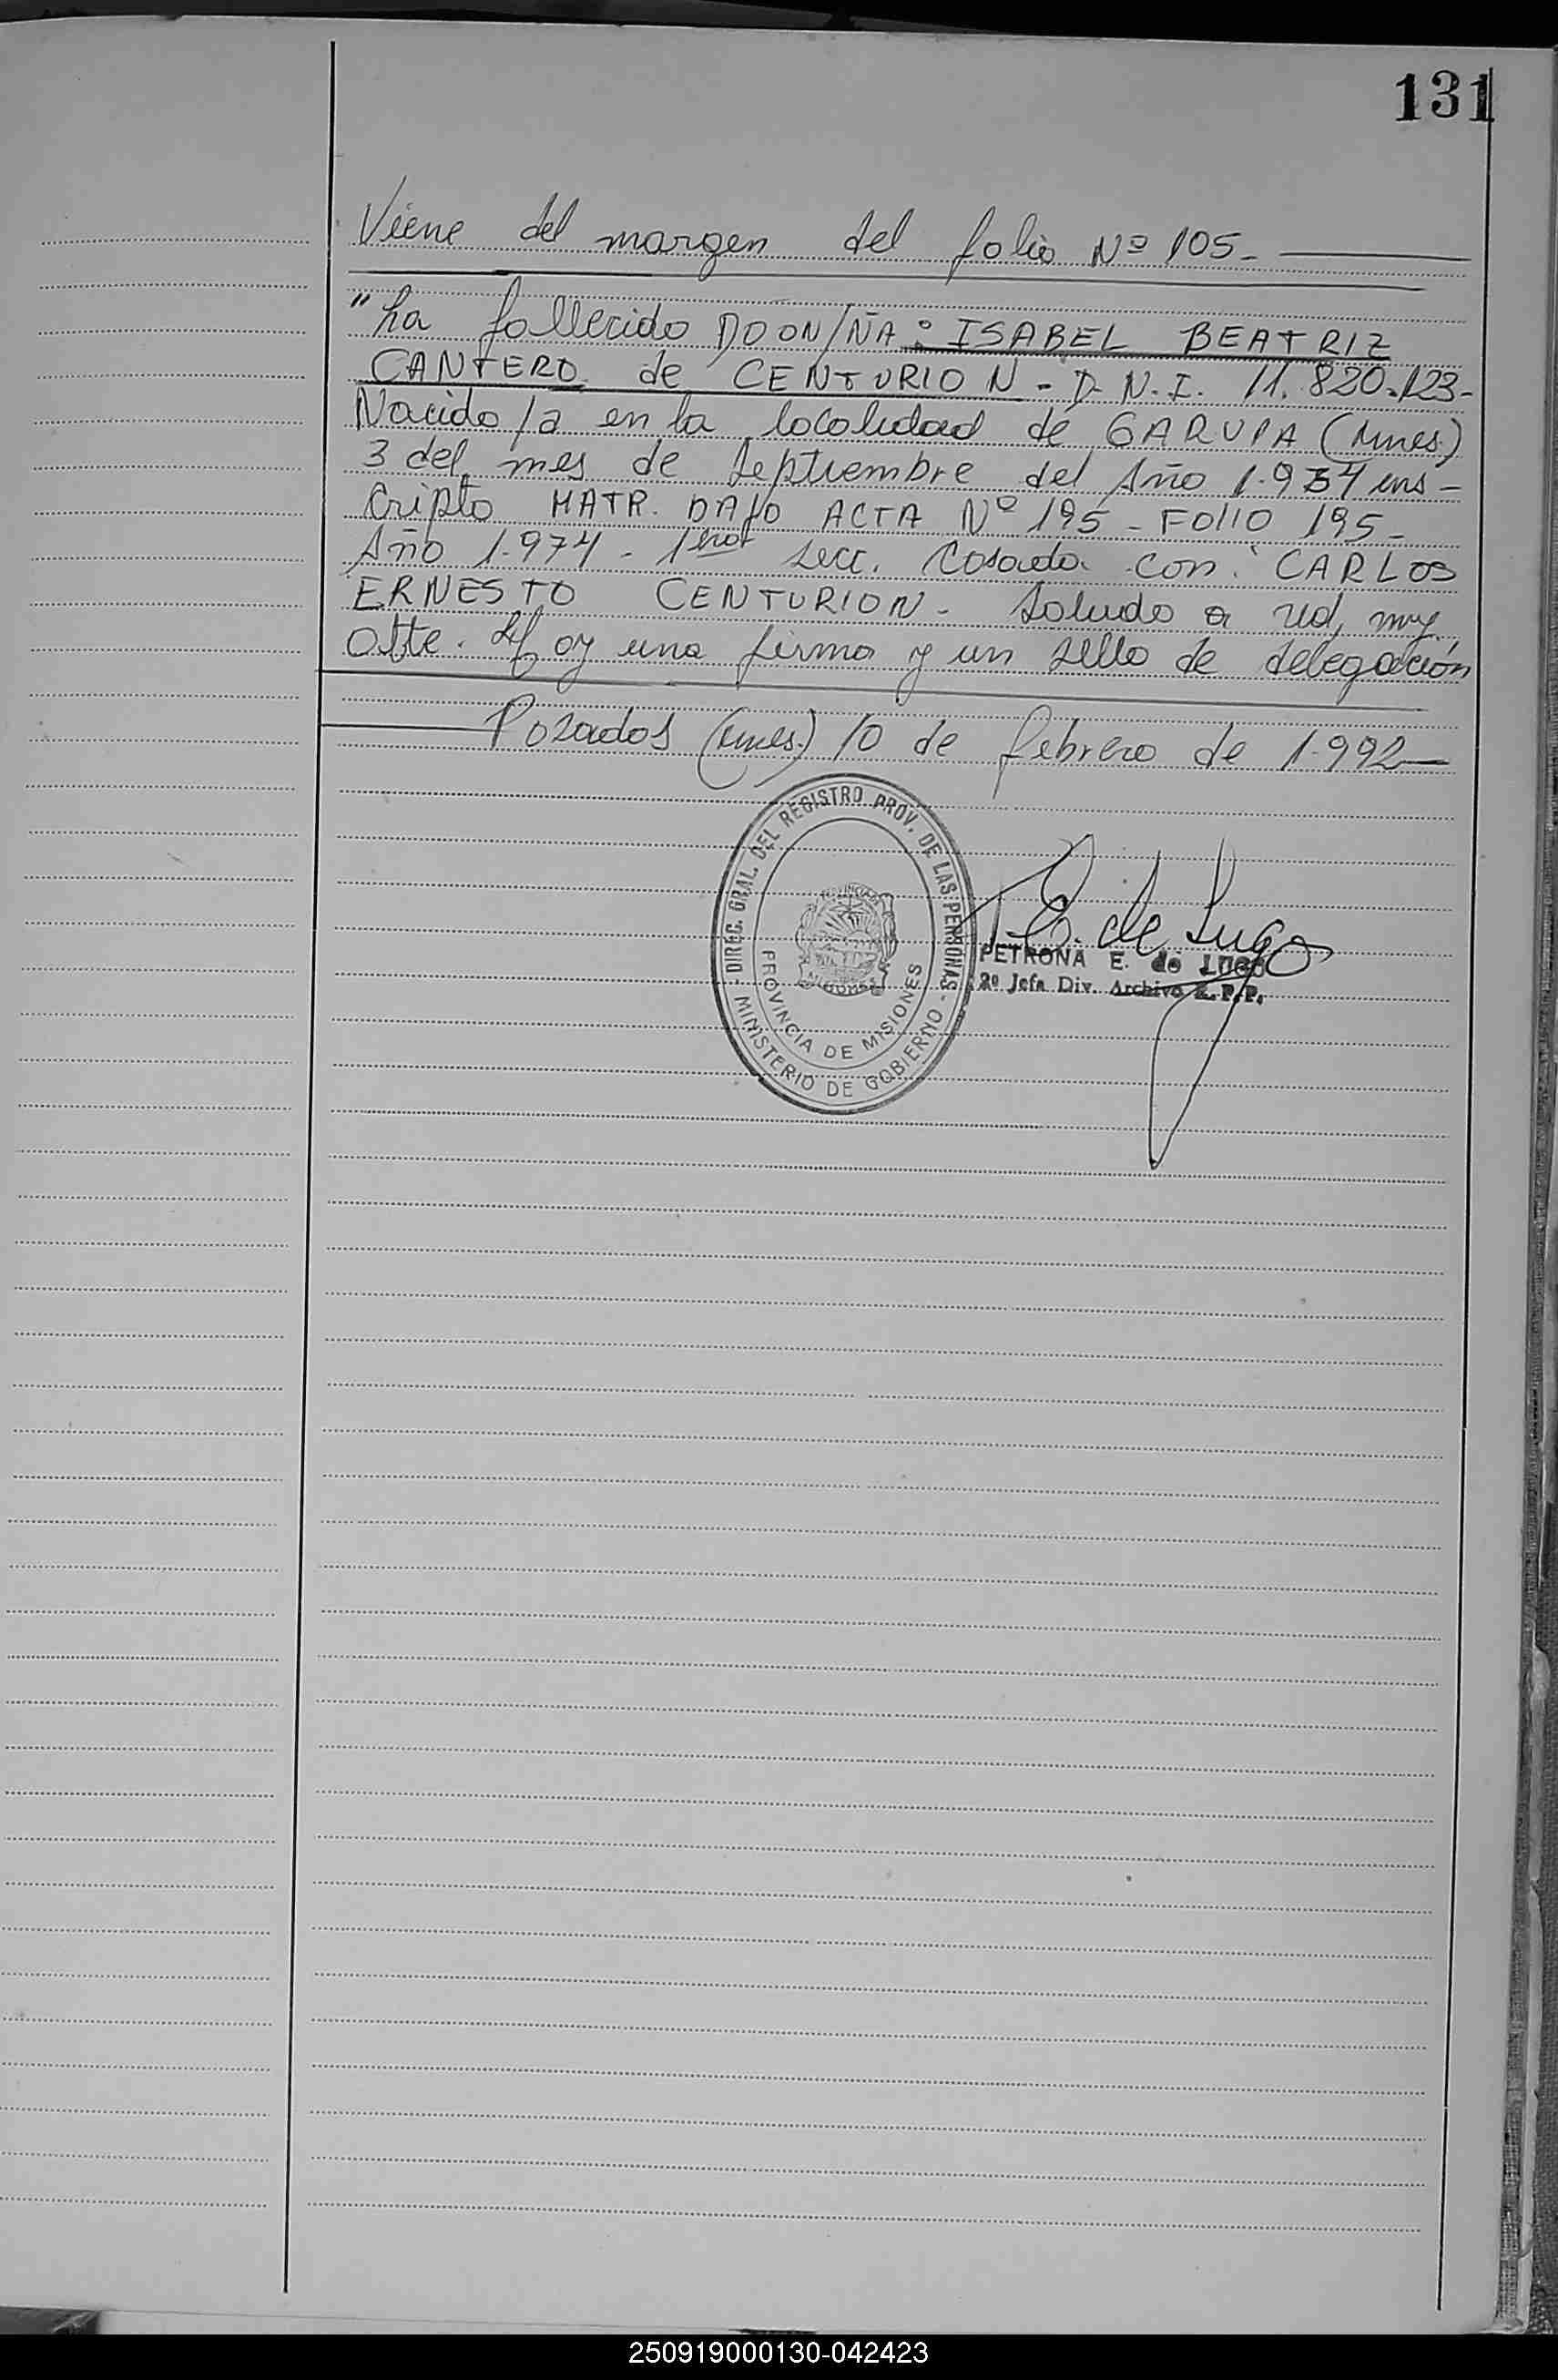 131
Viene del margen del folio Nº 105-
"ha fallecido DOON/ÑA: ISABEL BEATRIZ
CANTERO de CENTURION - D.N.I. 11.820.123-
Nacido/a en la localidad de GARUPA (Mnes)
3 del mes de Septiembre del Año 1.954 ins-
cripto MATR. DAJO ACTA Nº 195 - FOLIO 195-
Año 1.974 - 1era secc. Casada con: CARLOS
ERNESTO CENTURION - Saludo a Ud, muy
atte. Hoy una firma y un sello de delegación
Posadas (Mnes.) 10 de febrero de 1.992
DIREC. GRAL. DEL REGISTRO PROV. DE LAS PERSONAS
PROVINCIA DE MISIONES
MINISTERIO DE GOBIERNO
E. de Lugo
PETRONA E. de LUGO
2º Jefa Div. Archivo R.P.P.
250919000130-042423